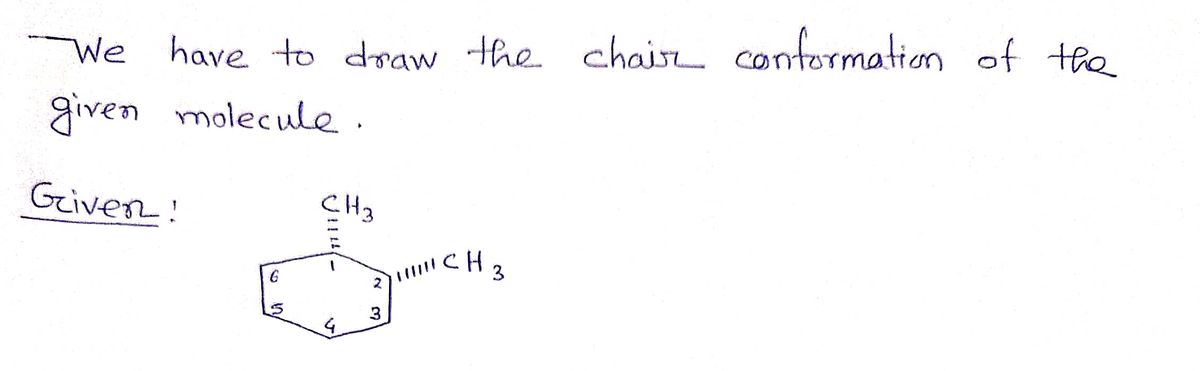 We have to draw the chair conformation of the
given molecule.
Given:
CH3
1
6
2
CH3
5
3
4